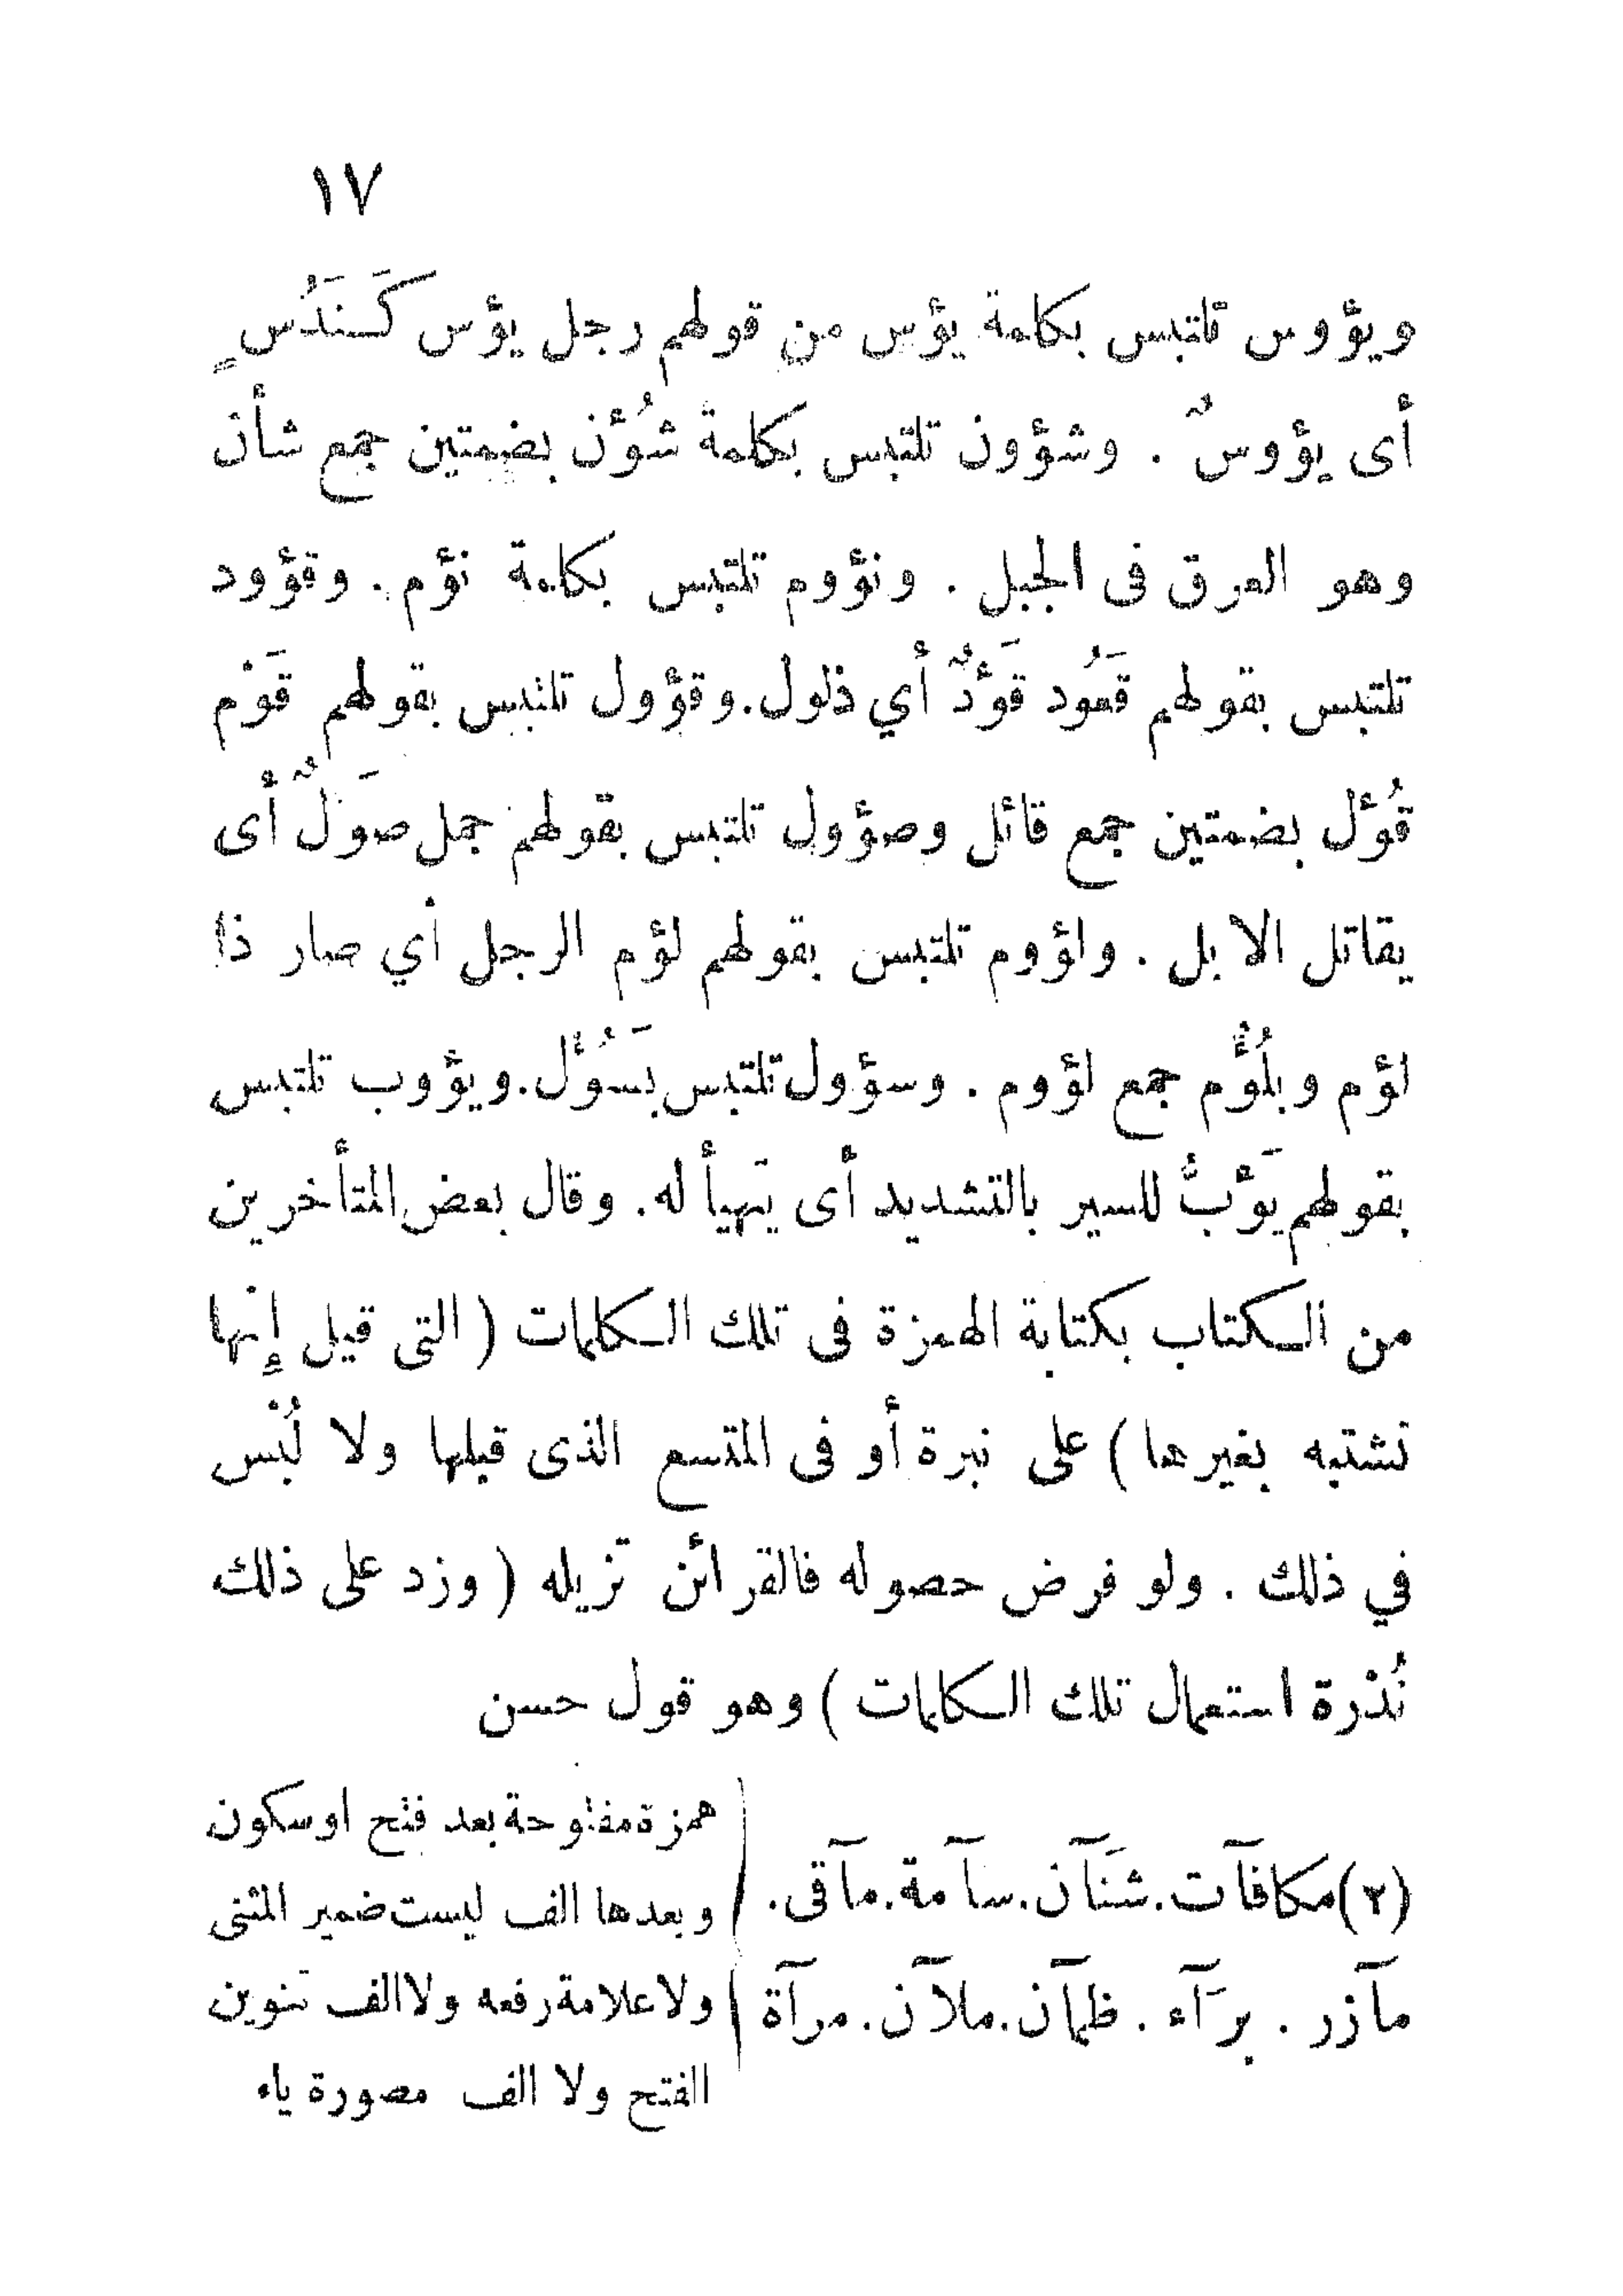 ١٧
ويؤوس تلتبس بكلمة يؤس من قولهم رجل يؤس كَنَدُسٍ
أى يؤوسٌ . وشؤون تلتبس بكلمة شُؤُن بضمتين جمع شأن
وهو العرق فى الجبل . ونؤوم تلتبس بكلمة نؤم . وقؤود
تلتبس بقولهم قَعُود قَؤدٌ أي ذلول . وقؤول تلتبس بقولهم قَوْم
قُؤُل بضمتين جمع قائل وصؤول تلتبس بقولهم جمل صَؤلٌ أى
يقاتل الابل . ولؤوم تلتبس بقولهم لؤم الرجل أي صار ذا
لؤم وبلُؤُم جمع لؤوم . وسؤول تلتبس بَسَؤُل . ويؤوب تلتبس
بقولهم يَؤبُّ للسير بالتشديد أى يتهيأ له . وقال بعض المتأخرين
من الكتاب بكتابة الهمزة فى تلك الكلمات ( التى قيل إنها
تشتبه بغيرها ) على نبرة أو فى المتسع الذى قبلها ولا لُبْس
في ذلك . ولو فرض حصوله فالقرائن تزيله ( وزد على ذلك
نُدْرة استعمال تلك الكلمات ) وهو قول حسن
(٢) مكافآت . شَنَآن . سآمة . مآقى .
مآزر . برَآء . ظمآن . ملآن . مرآة
همزة مفتوحة بعد فتح او سكون
وبعدها الف ليست ضمير المثنى
ولا علامة رفعه ولا الف تنوين
الفتح ولا الف مصورة ياء